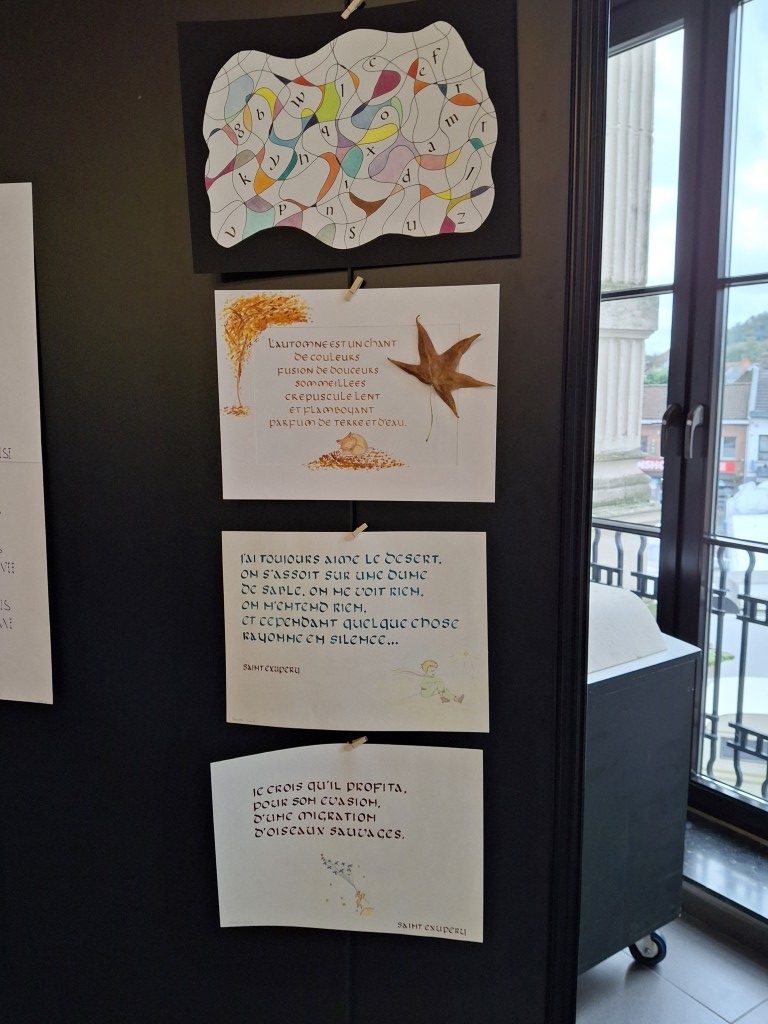 c e f
w l r
g b q o m t
k y n x a
i d j
v p s u z
L'AUTOMNE EST UN CHANT
DE COULEURS
FUSION DE DOUCEURS
SOMMEILLEES
CREPUSCULE LENT
ET FLAMBOYANT
PARFUM DE TERRE ET D'EAU.
J'AI TOUJOURS AIME LE DESERT.
ON S'ASSOIT SUR UNE DUNE
DE SABLE. ON NE VOIT RIEN.
ON N'ENTEND RIEN.
ET CEPENDANT QUELQUE CHOSE
RAYONNE EN SILENCE...
SAINT EXUPERY
JE CROIS QU'IL PROFITA,
POUR SON EVASION,
D'UNE MIGRATION
D'OISEAUX SAUVAGES.
SAINT EXUPERY